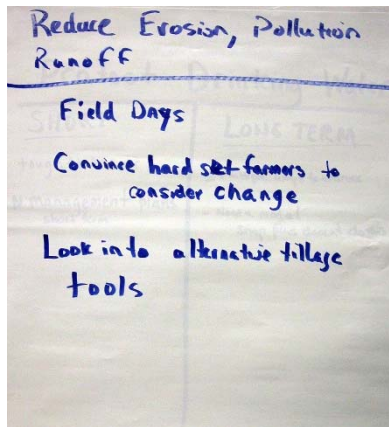 Reduce Erosion, Pollution
Runoff
Field Days
Convince hard set farmers to
consider change
Look into alternative tillage
tools
SHORT
LONG TERM